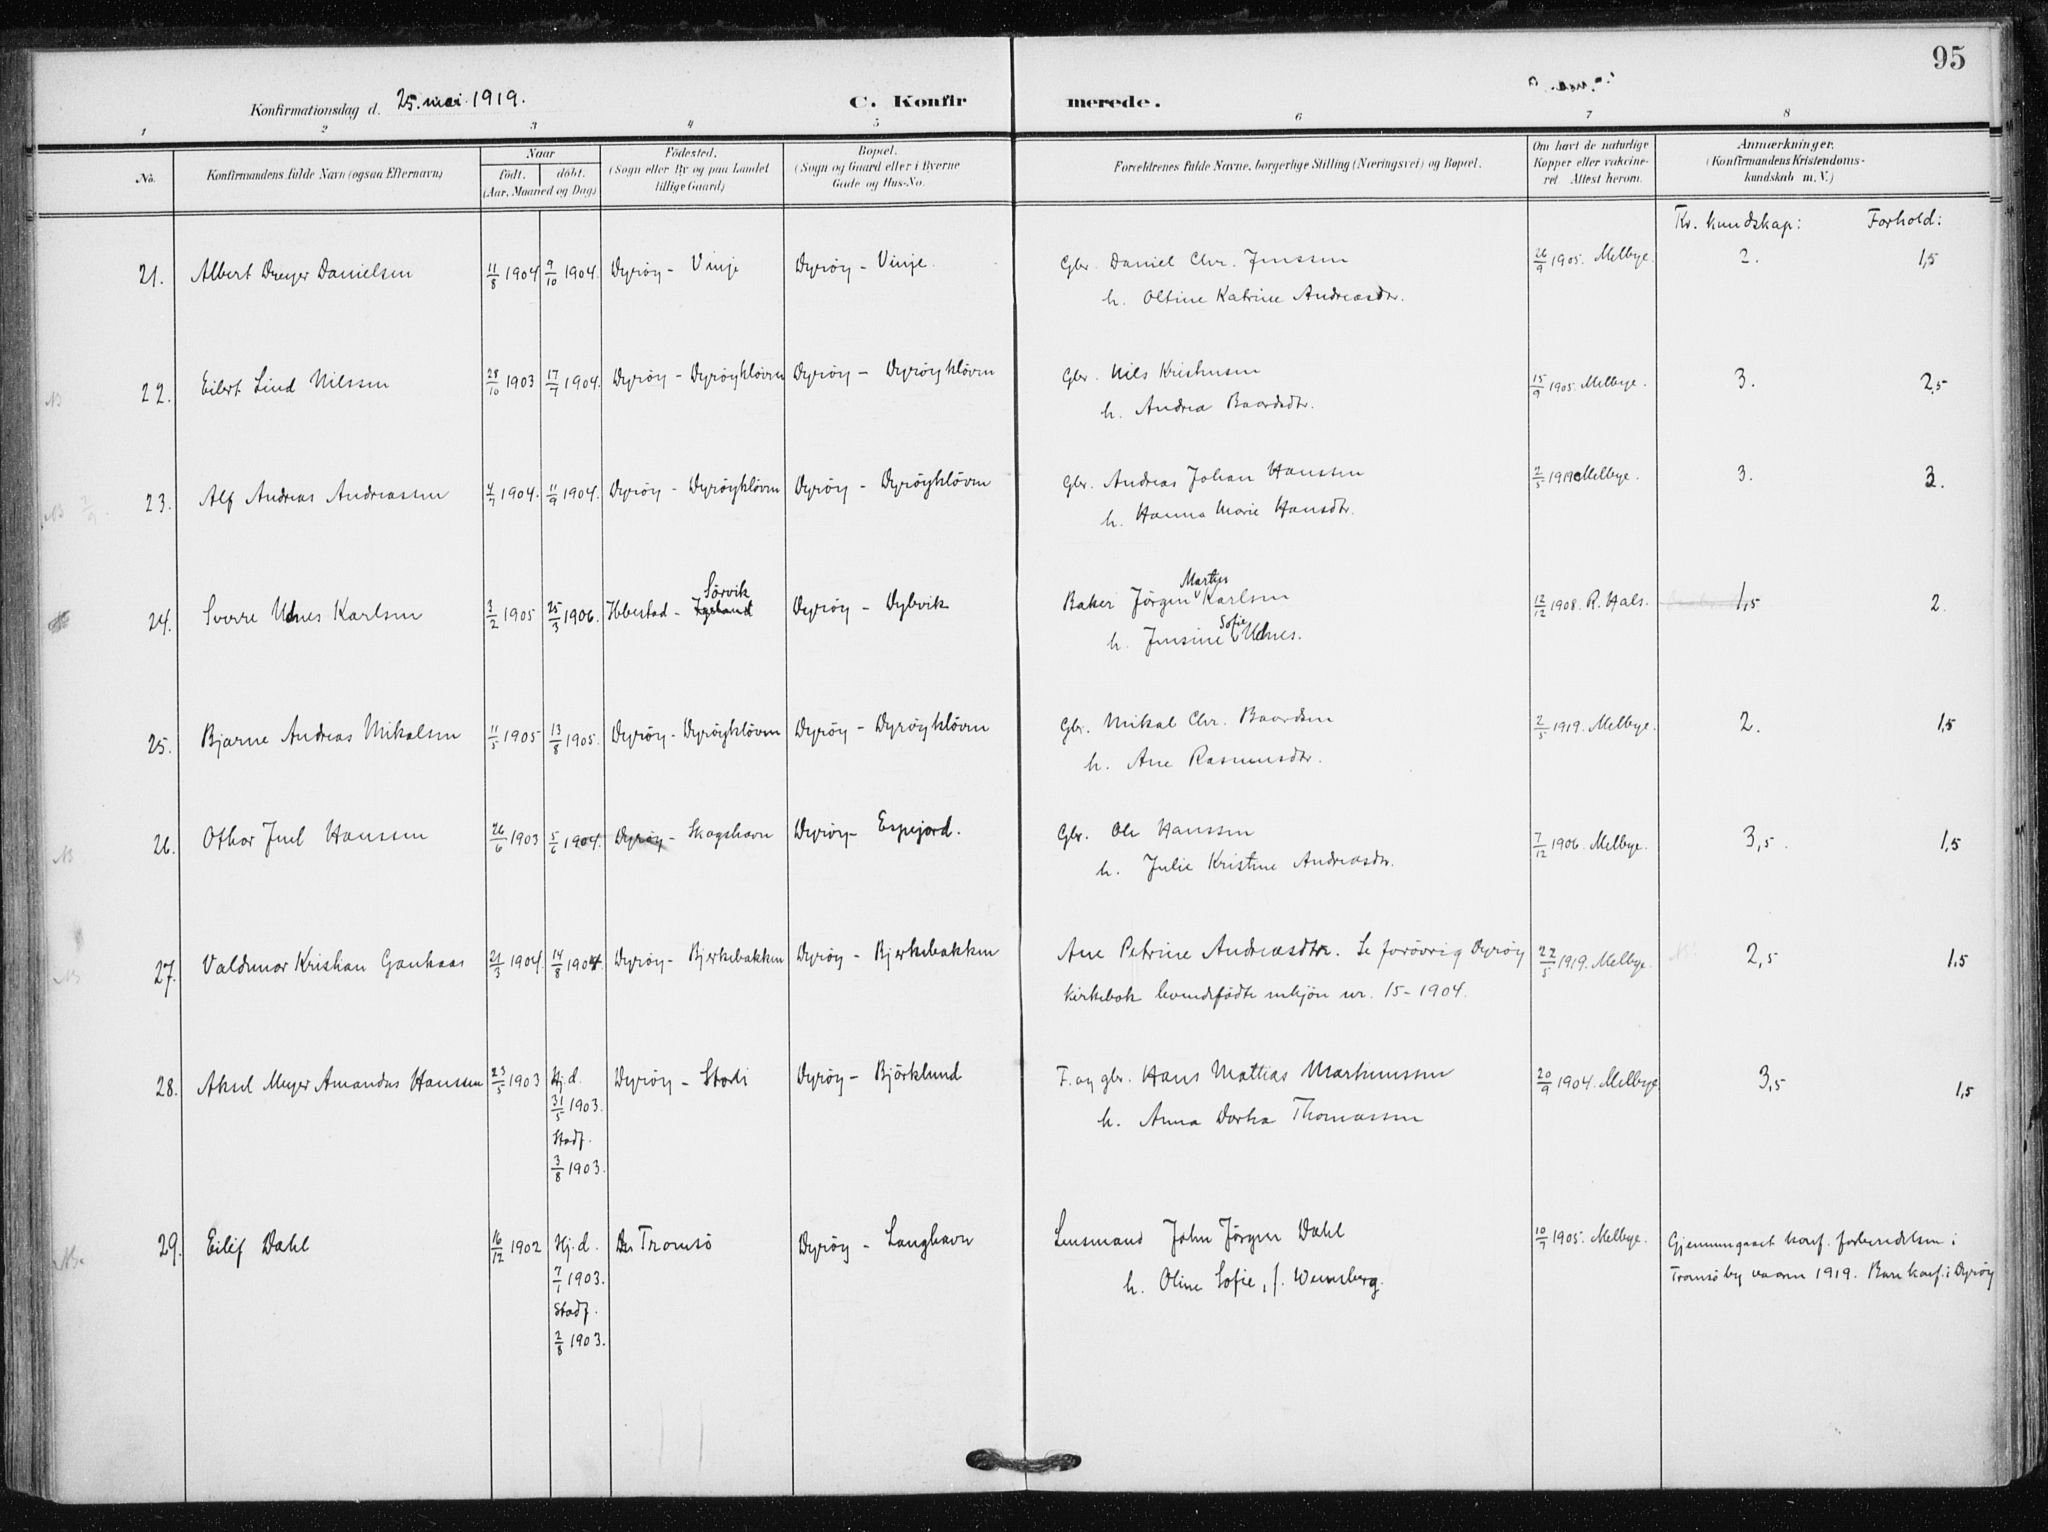 95
Konfirmationsdag d. 25. mai 1919.
C. Konfirmerede.
1 2 3 4 5 6 7 8
No.
Konfirmandens fulde Navn (ogsaa Efternavn)
Naar
født. døbt.
(Aar, Maaned og Dag)
Fødested.
(Sogn eller By og paa Landet
tillige Gaard)
Bopæl.
(Sogn og Gaard eller i Byerne
Gade og Hus-No.
Forældrenes fulde Navne, borgerlige Stilling (Næringsvei) og Bopæl.
Om havt de naturlige
Kopper eller vakcine-
ret Attest herom.
Anmærkninger.
(Konfirmandens Kristendoms-
kundskab m. V.)
Kr. kundskap: Forhold:
21. Albert Dreyer Danielsen 11/8 1904 9/10 1904. Dyrøy - Vinje Dyrøy - Vinje. Gbr. Daniel Chr. Jenssen 26/9 1905. Melbye. 2. 1,5
h. Oltine Katrine Andreasdtr.
22. Eilert Lind Nilssen 28/10 1903 17/7 1904. Dyrøy - Dyrøykløven Dyrøy - Dyrøykløven Gbr. Nils Kristensen 15/9 1905. Melbye. 3. 2,5
h. Andrea Baardsdtr.
23. Alf Andreas Andreassen 4/7 1904. 11/9 1904. Dyrøy - Dyrøykløven Dyrøy - Dyrøykløven Gbr. Andreas Johan Hanssen 2/5 1919 Melbye. 3. 3.
h. Hanna Marie Hansdtr.
24. Sverre Udnes Karlsen 3/2 1905 25/3 1906. Ibbestad - Sørvik Dyrøy - Dybvik Baker Jørgen Martin Karlsen 12/12 1908. R. Hals. 1,5 2.
h. Jensine Sofie Udnes.
25. Bjarne Andreas Mikalsen 11/5 1905 13/8 1905. Dyrøy - Dyrøykløven Dyrøy - Dyrøykløven Gbr. Mikal Chr. Baardsen 2/5 1919. Melbye. 2. 1,5
h. Ane Rasmusdtr.
26. Othar Juel Hanssen 26/6 1903 5/6 1904. Dyrøy - Skogshavn Dyrøy - Espejord. Gbr. Ole Hanssen 7/12 1906. Melbye. 3,5. 1,5
h. Julie Kristine Andreasdtr.
27. Valdemar Kristian Ganhaas 21/3 1904. 14/8 1904 Dyrøy - Bjerkebakken Dyrøy - Bjerkebakken Ane Petrine Andreasdtr. Se forøvrig Dyrøy 22/5 1919. Melbye. 2,5 1,5
kirkebok levendefødte mkjøn nr. 15 - 1904.
28. Aksel Meyer Amandus Hanssen 23/5 1903 Hj.d. Dyrøy - Storli Dyrøy - Bjørklund F. og gbr. Hans Mattias Martinussen 20/9 1904. Melbye 3,5 1,5
31/5 1903. h. Anna Dorka Thomassen
Stadf.
3/8 1903.
29. Eilif Dahl 16/12 1902 Hj.d. Tromsø Dyrøy - Langhavn Lensmand John Jørgen Dahl 10/7 1905. Melbye. Gjennemgaaet konf. forberedelsen i
7/1 1903. h. Oline Sofie, f. Wennberg. Tromsø by vaaren 1919. Bare konf. i Dyrøy
Stadf.
2/8 1903.